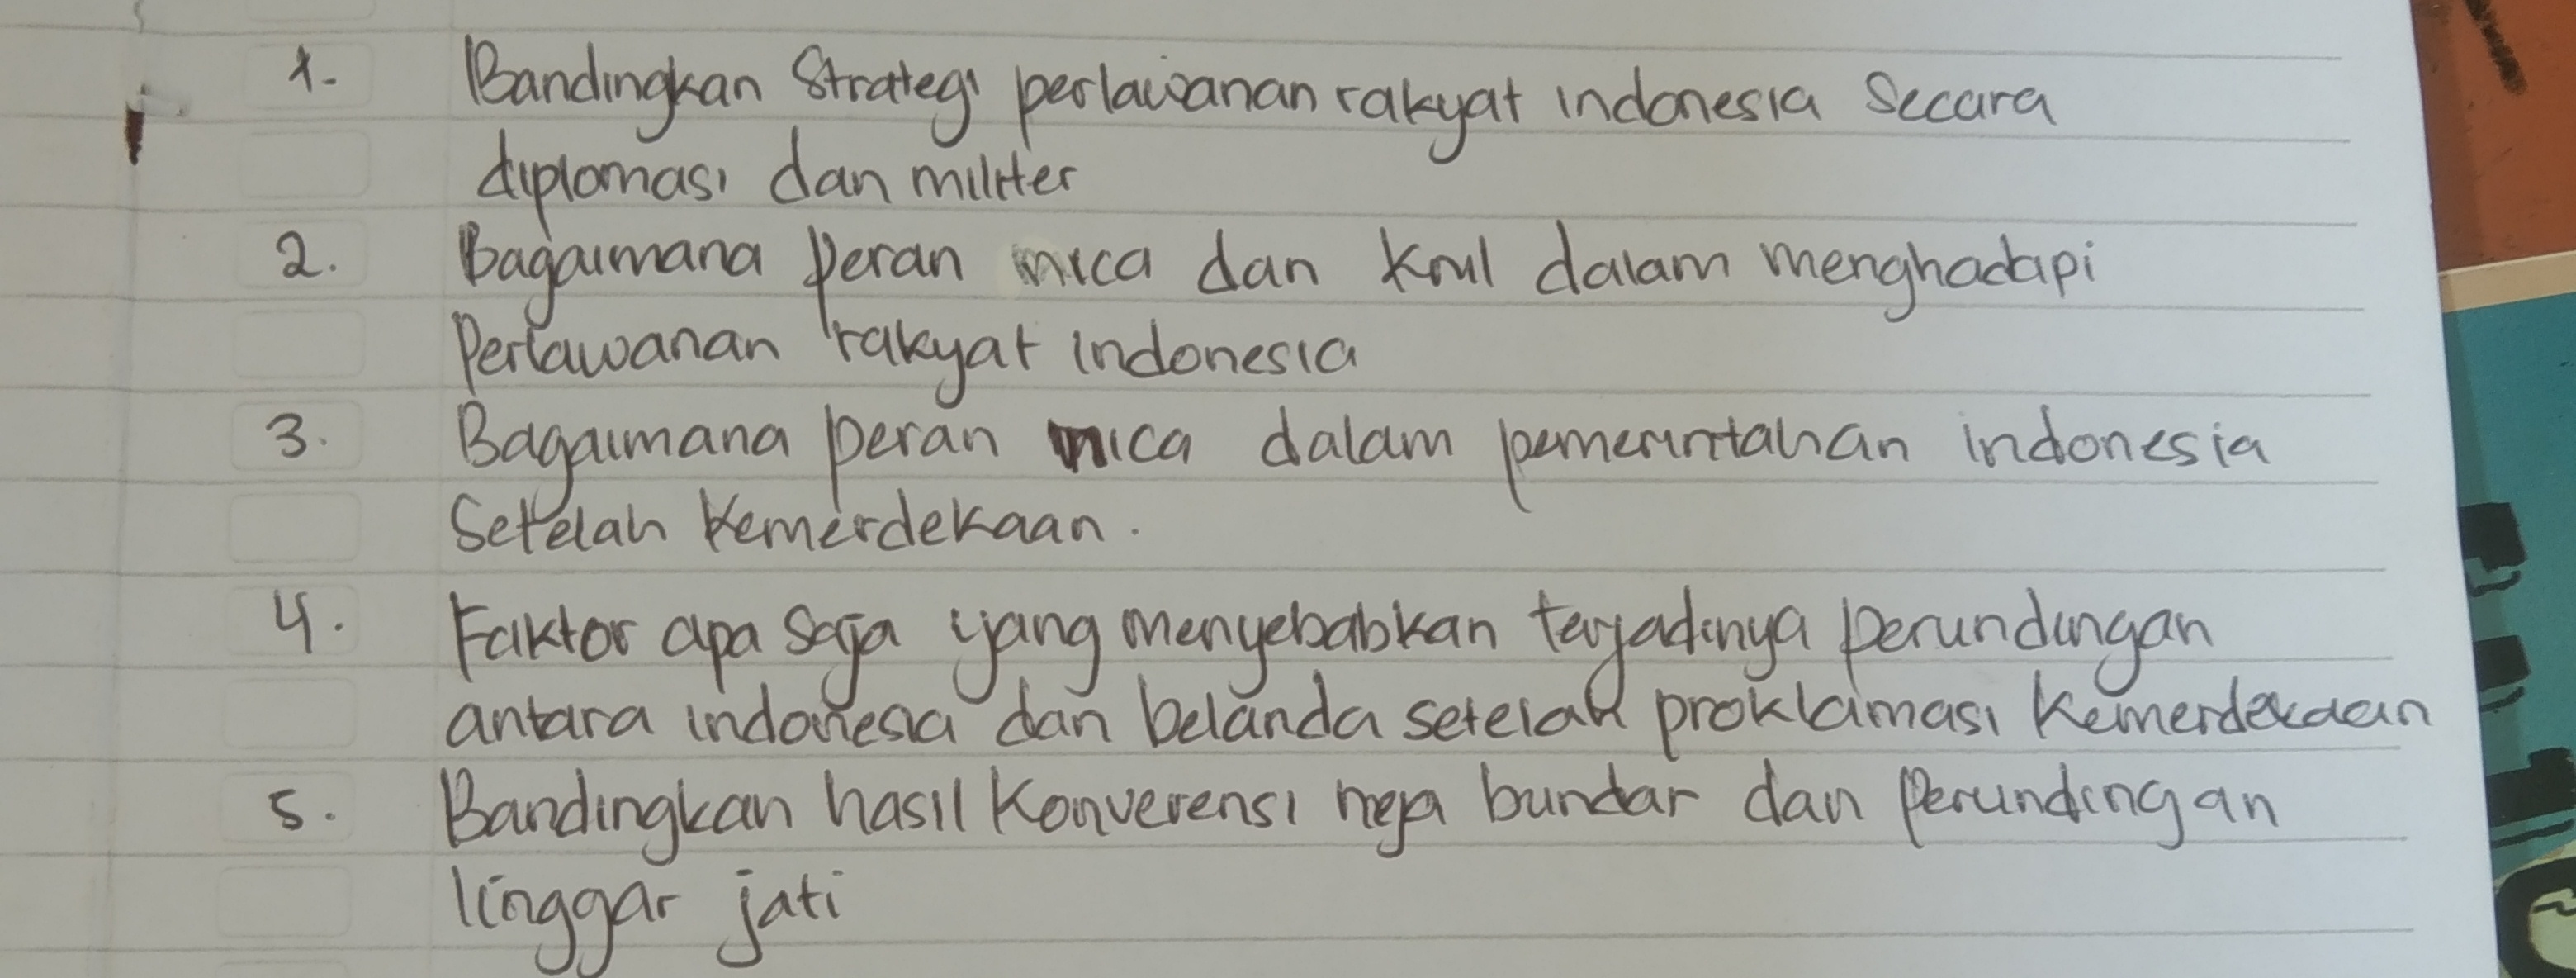 1. Bandingkan Strategi perlawanan rakyat indonesia secara
diplomasi dan militer
2. Bagaimana peran nica dan knil dalam menghadapi
Perlawanan rakyat indonesia
3. Bagaimana peran nica dalam pemerintahan indonesia
Setelah kemerdekaan.
4. Faktor apa saja yang menyebabkan terjadinya perundingan
antara indonesia dan belanda setelah proklamasi kemerdekaan
5. Bandingkan hasil Konverensi meja bundar dan perundingan
linggar jati